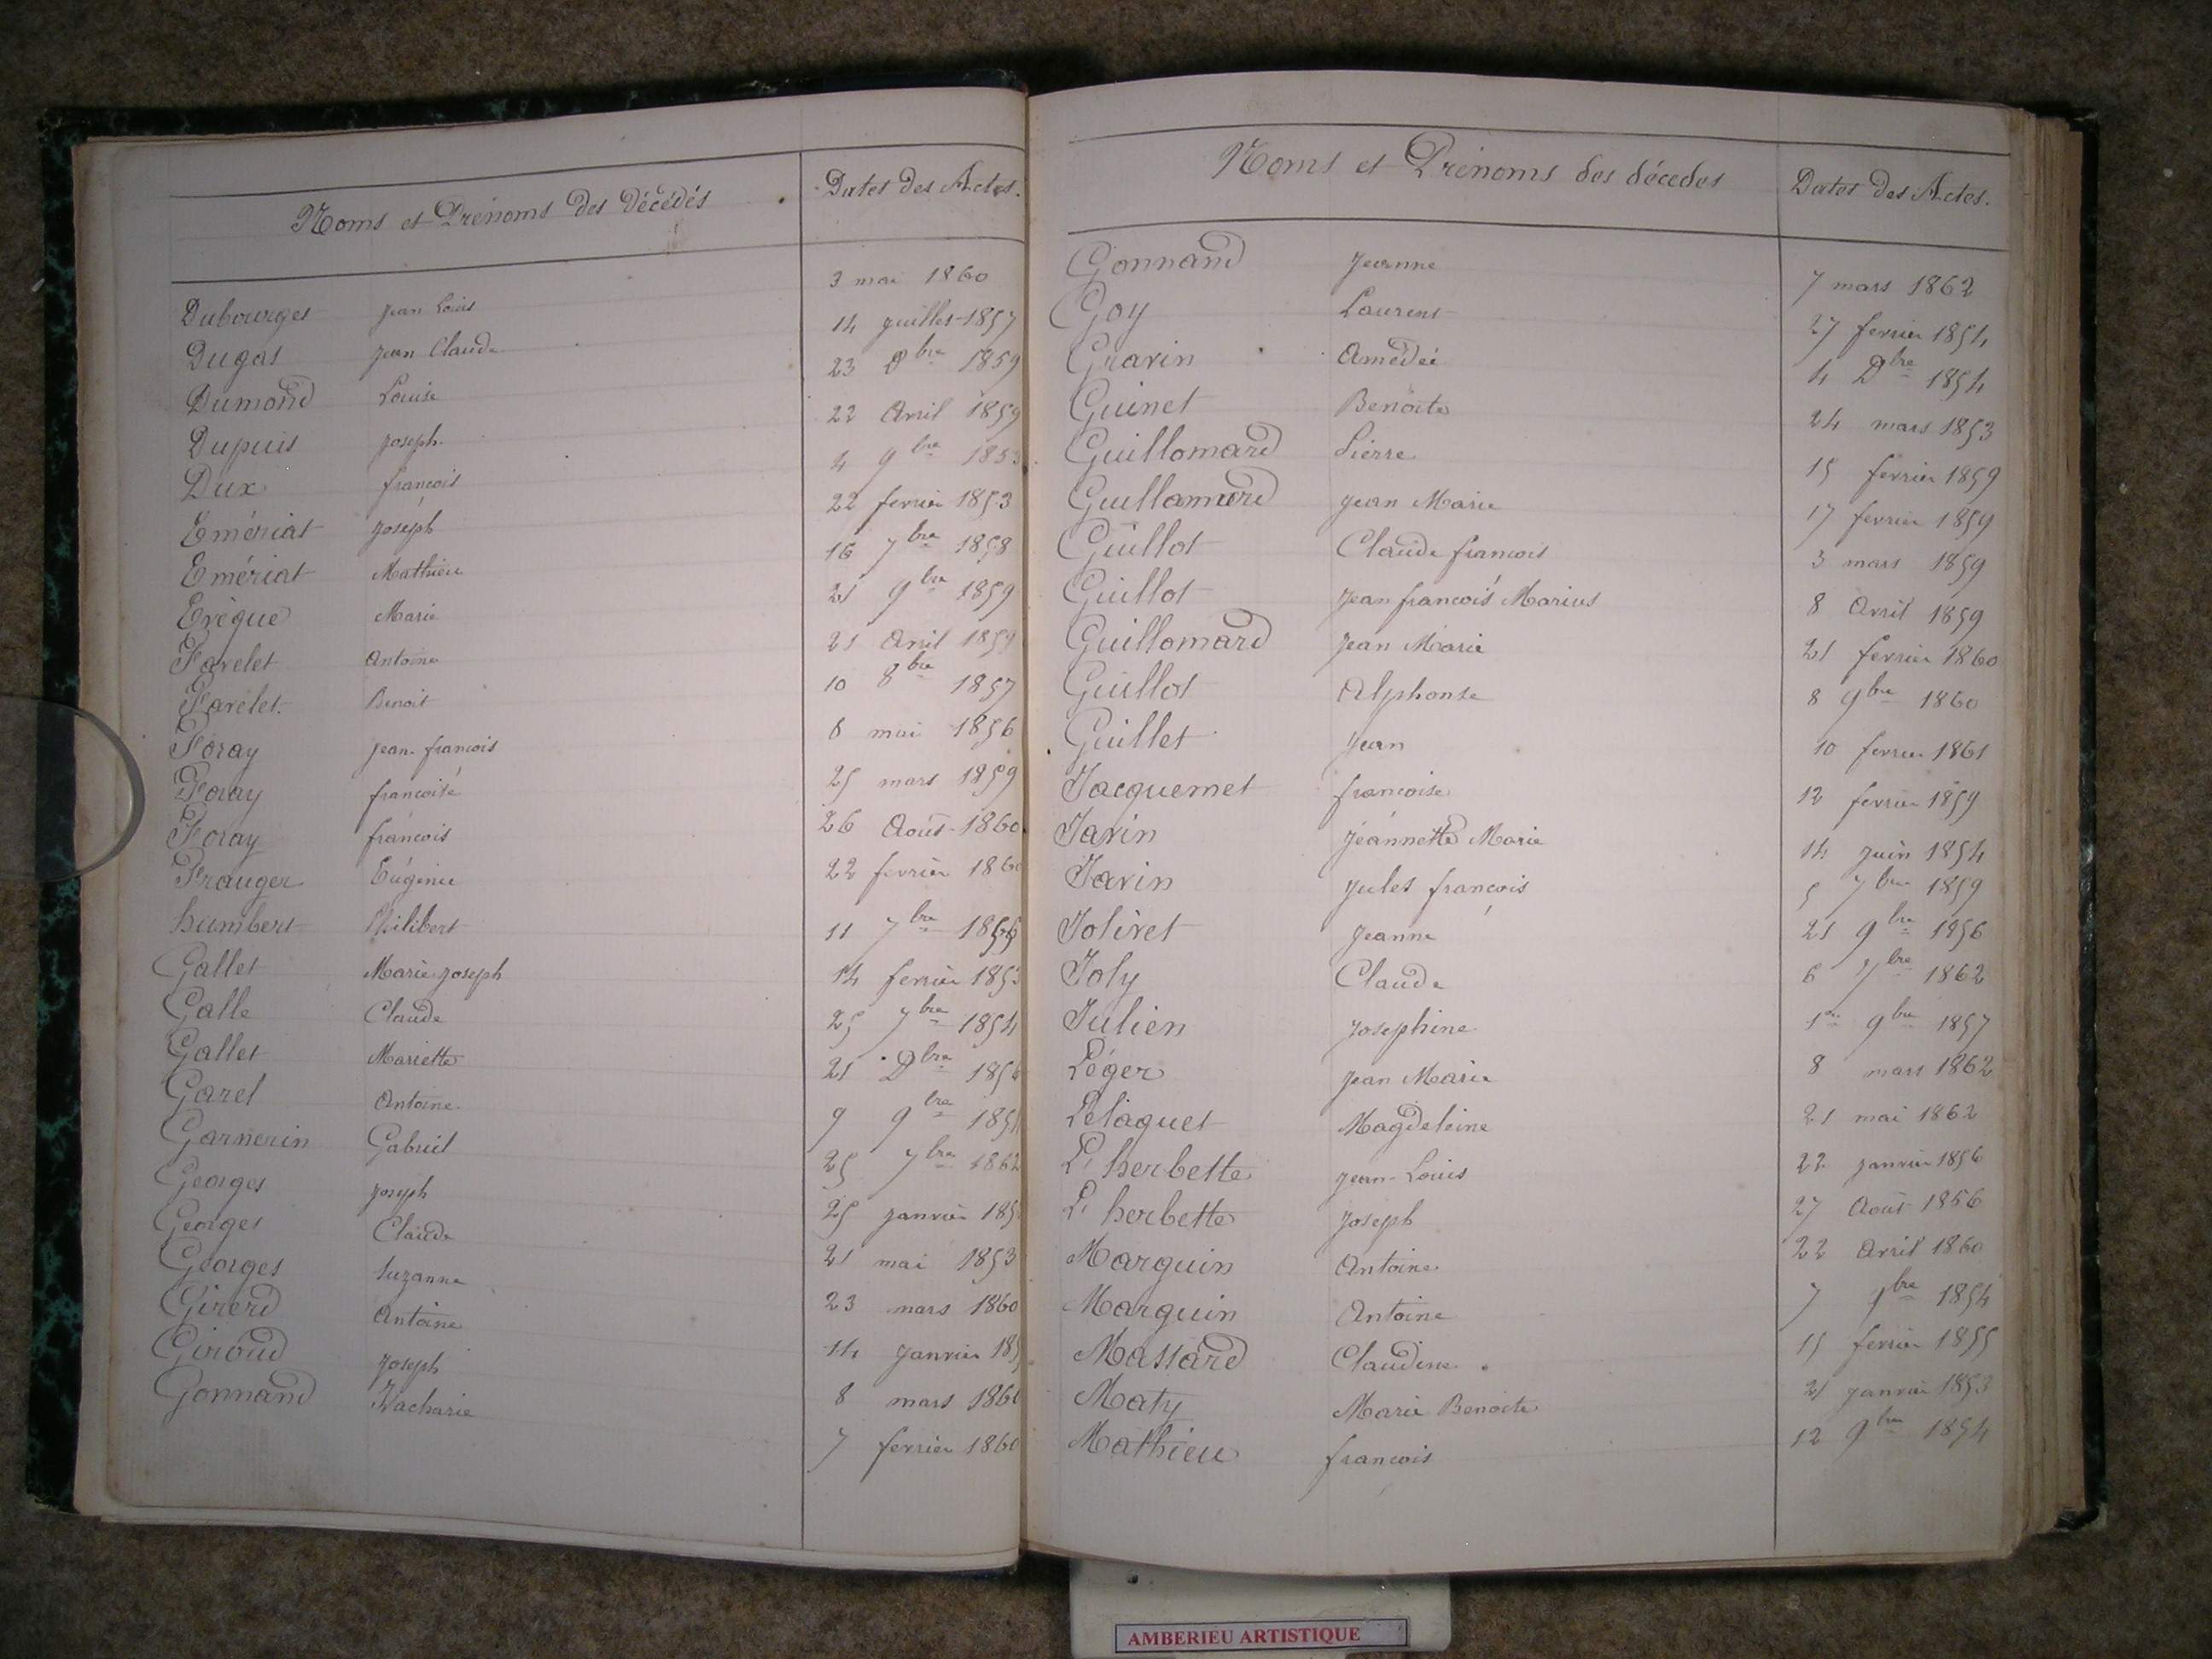 Noms et Prénoms des Décédés Dates des Actes.
Dubourges Jean Louis 3 mai 1860
Dugas Jean Claude 14 juillet 1857
Dumond Louise 23 Dbre 1859
Dupuis Joseph 22 Avril 1859
Dux françois 4 9bre 1853
Emériat Joseph 22 fevrier 1853
Emériat Mathieu 16 7bre 1858
Evèque Marie 21 9bre 1859
Favelet Antoine 21 Avril 1859
Favelet Benoit 10 8bre 1857
Foray Jean-françois 8 mai 1856
Foray françoise 25 mars 1859
Foray françois 26 Août 1860
Frauger Eugénie 22 fevrier 1860
humbert Philibert 11 7bre
Gallet Marie Joseph 14 fevrier 1853
Galle Claude 25 7bre 1854
Gallet Mariette 21 Dbre
Garel Antoine 9 9bre
Garnerin Gabriel 25 7bre 1862
Georges Joseph 25 janvier
Georges Claude 21 mai 1853
Georges Suzanne 23 mars 1860
Girerd Antoine 14 janvier
Giroud Joseph 8 mars
Gonnand Zacharie 7 fevrier 1860
Noms et Prénoms des décedes Dates des Actes.
Gonnand Jeanne 7 mars 1862
Goy Laurent 27 fevrier 1854
Gravin Amédée 4 Dbre 1854
Guinet Benoite 24 mars 1853
Guillomard Pierre 15 fevrier 1859
Guillamord Jean Marie 17 fevrier 1859
Guillot Claude françois 3 mars 1859
Guillot Jean françois Marius 8 Avril 1859
Guillomard Jean Marie 21 fevrier 1860
Guillot Alphonse 8 9bre 1860
Guillet Jean 10 fevrier 1861
Jacquemet françoise 12 fevrier 1859
Javin Jéannette Marie 14 juin 1854
Javin Jules françois 5 7bre 1859
Jolivet Jeanne 21 9bre 1856
Joly Claude 6 7bre 1862
Julien Josephine 1er 9bre 1857
Léger Jean Marie 8 mars 1862
Lélaquet Magdeleine 21 mai 1862
L'herbette Jean-Louis 22 janvier 1856
L'herbette Joseph 27 Août 1856
Marquin Antoine 22 Avril 1860
Marquin Antoine 7 bre 1854
Massard Claudine 15 fevrier 1855
Maty Marie Benoite 21 janvier 1853
Mathieu françois 12 9bre 1854
AMBERIEU ARTISTIQUE